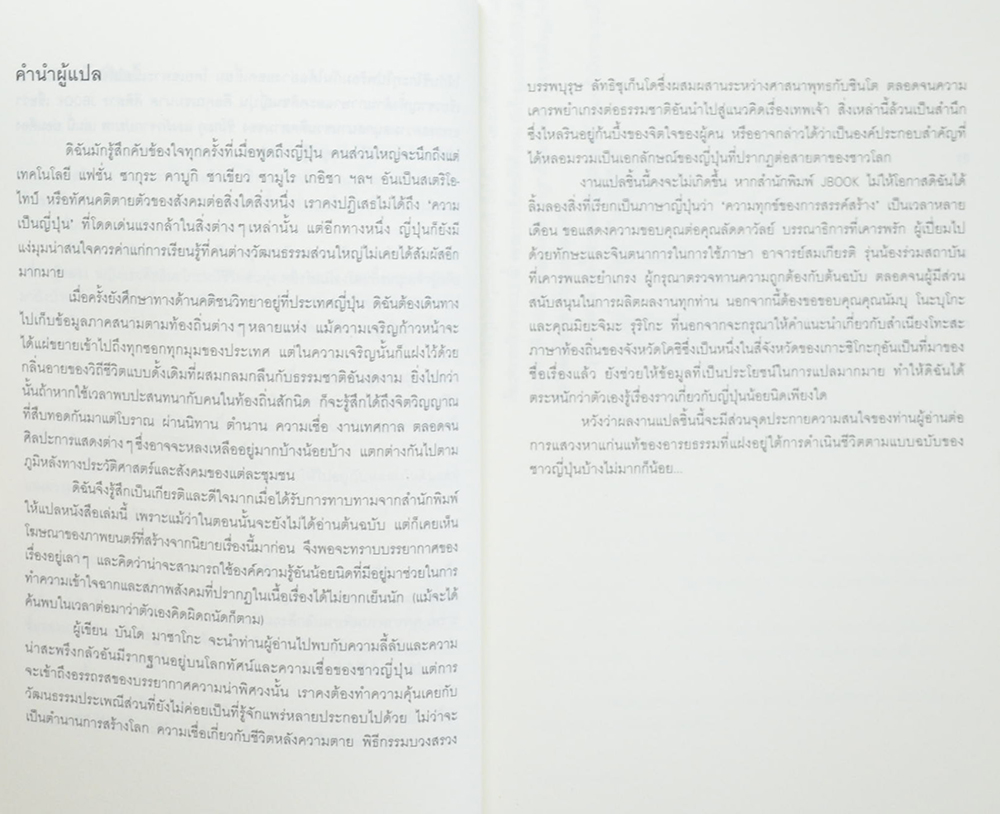 คำนำผู้แปล
ดิฉันมักรู้สึกคับข้องใจทุกครั้งที่เมื่อพูดถึงญี่ปุ่น คนส่วนใหญ่จะนึกถึงแต่
เทคโนโลยี แฟชั่น ซากุระ คาบูกิ ชาเขียว ซามูไร เกอิชา ฯลฯ อันเป็นสเตริโอ-
ไทป์ หรือทัศนคติตายตัวของสังคมต่อสิ่งใดสิ่งหนึ่ง เราคงปฏิเสธไม่ได้ถึง "ความ
เป็นญี่ปุ่น" ที่โดดเด่นแรงกล้าในสิ่งต่างๆเหล่านั้น แต่อีกทางหนึ่ง ญี่ปุ่นก็ยังมี
แง่มุมน่าสนใจควรค่าแก่การเรียนรู้ที่คนต่างวัฒนธรรมส่วนใหญ่ไม่เคยได้สัมผัสอีก
มากมาย
เมื่อครั้งยังศึกษาทางด้านคติชนวิทยาอยู่ที่ประเทศญี่ปุ่น ดิฉันต้องเดินทาง
ไปเก็บข้อมูลภาคสนามตามท้องถิ่นต่างๆหลายแห่ง แม้ความเจริญก้าวหน้าจะ
ได้แผ่ขยายเข้าไปถึงทุกซอกทุกมุมของประเทศ แต่ในความเจริญนั้นก็แฝงไว้ด้วย
กลิ่นอายของวิถีชีวิตแบบดั้งเดิมที่ผสมกลมกลืนกับธรรมชาติอันงดงาม ยิ่งไปกว่า
นั้นถ้าหากใช้เวลาพบปะสนทนากับคนในท้องถิ่นสักนิด ก็จะรู้สึกได้ถึงจิตวิญญาณ
ที่สืบทอดกันมาแต่โบราณ ผ่านนิทาน ตำนาน ความเชื่อ งานเทศกาล ตลอดจน
ศิลปะการแสดงต่างๆซึ่งอาจจะหลงเหลืออยู่มากบ้างน้อยบ้าง แตกต่างกันไปตาม
ภูมิหลังทางประวัติศาสตร์และสังคมของแต่ละชุมชน
ดิฉันจึงรู้สึกเป็นเกียรติและดีใจมากเมื่อได้รับการทาบทามจากสำนักพิมพ์
ให้แปลหนังสือเล่มนี้ เพราะแม้ว่าในตอนนั้นจะยังไม่ได้อ่านต้นฉบับ แต่ก็เคยเห็น
โฆษณาของภาพยนตร์ที่สร้างจากนิยายเรื่องนี้มาก่อน จึงพอจะทราบบรรยากาศของ
เรื่องอยู่เลาๆ และคิดว่าน่าจะสามารถใช้องค์ความรู้อันน้อยนิดที่มีอยู่มาช่วยในการ
ทำความเข้าใจฉากและสภาพสังคมที่ปรากฏในเนื้อเรื่องได้ไม่ยากเย็นนัก (แม้จะได้
ค้นพบในเวลาต่อมาว่าตัวเองคิดผิดถนัดก็ตาม)
ผู้เขียน บันโด มาซาโกะ จะนำท่านผู้อ่านไปพบกับความลี้ลับและความ
น่าสะพรึงกลัวอันมีรากฐานอยู่บนโลกทัศน์และความเชื่อของชาวญี่ปุ่น แต่การ
จะเข้าถึงอรรถรสของบรรยากาศความน่าพิศวงนั้น เราคงต้องทำความคุ้นเคยกับ
วัฒนธรรมประเพณีส่วนที่ยังไม่ค่อยเป็นที่รู้จักแพร่หลายประกอบไปด้วย ไม่ว่าจะ
เป็นตำนานการสร้างโลก ความเชื่อเกี่ยวกับชีวิตหลังความตาย พิธีกรรมบวงสรวง
บรรพบุรุษ ลัทธิชุเก็นโดซึ่งผสมผสานระหว่างศาสนาพุทธกับชินโต ตลอดจนความ
เคารพยำเกรงต่อธรรมชาติอันนำไปสู่แนวคิดเรื่องเทพเจ้า สิ่งเหล่านี้ล้วนเป็นสำนึก
ซึ่งไหลรินอยู่ก้นบึ้งของจิตใจของผู้คน หรืออาจกล่าวได้ว่าเป็นองค์ประกอบสำคัญที่
ได้หลอมรวมเป็นเอกลักษณ์ของญี่ปุ่นที่ปรากฏต่อสายตาของชาวโลก
งานแปลชิ้นนี้คงจะไม่เกิดขึ้น หากสำนักพิมพ์ JBOOK ไม่ให้โอกาสดิฉันได้
ลิ้มลองสิ่งที่เรียกเป็นภาษาญี่ปุ่นว่า "ความทุกข์ของการสรรค์สร้าง" เป็นเวลาหลาย
เดือน ขอแสดงความขอบคุณต่อคุณลัดดาวัลย์ บรรณาธิการที่เคารพรัก ผู้เปี่ยมไป
ด้วยทักษะและจินตนาการในการใช้ภาษา อาจารย์สมเกียรติ รุ่นน้องร่วมสถาบัน
ที่เคารพและยำเกรง ผู้กรุณาตรวจทานความถูกต้องกับต้นฉบับ ตลอดจนผู้มีส่วน
สนับสนุนในการผลิตผลงานทุกท่าน นอกจากนี้ต้องขอขอบคุณคุณนัมบุ โนะบุโกะ
และคุณมิยะจิมะ รุริโกะ ที่นอกจากจะกรุณาให้คำแนะนำเกี่ยวกับสำเนียงโทะสะ
ภาษาท้องถิ่นของจังหวัดโคชิซึ่งเป็นหนึ่งในสี่จังหวัดของเกาะชิโกะกุอันเป็นที่มาของ
ชื่อเรื่องแล้ว ยังช่วยให้ข้อมูลที่เป็นประโยชน์ในการแปลมากมาย ทำให้ดิฉันได้
ตระหนักว่าตัวเองรู้เรื่องราวเกี่ยวกับญี่ปุ่นน้อยนิดเพียงใด
หวังว่าผลงานแปลชิ้นนี้จะมีส่วนจุดประกายความสนใจของท่านผู้อ่านต่อ
การแสวงหาแก่นแท้ของอารยธรรมที่แฝงอยู่ใต้การดำเนินชีวิตตามแบบฉบับของ
ชาวญี่ปุ่นบ้างไม่มากก็น้อย...